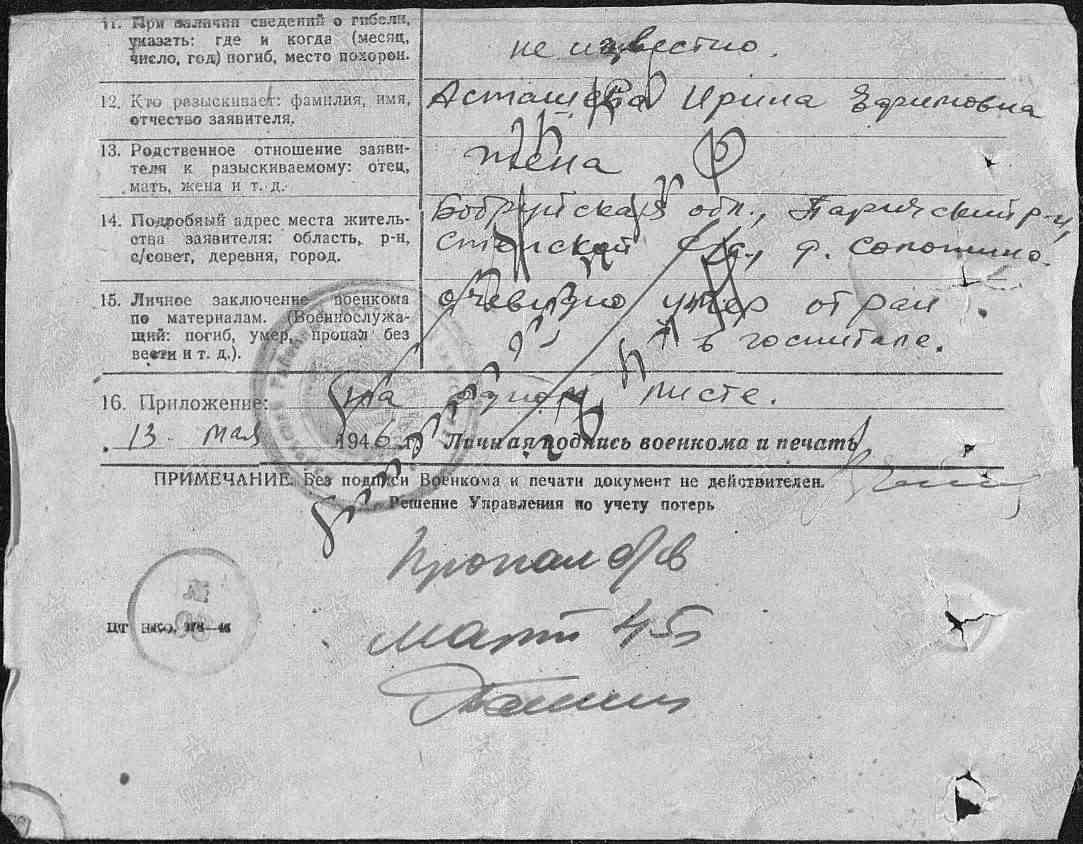 11. При наличии сведений о гибели,
указать: где и когда (месяц,
число, год) погиб, место похорон.
не известно.
12. Кто разыскивает: фамилия, имя,
отчество заявителя.
Асташева Ирина Ефимовна
13. Родственное отношение заяви-
теля к разыскиваемому: отец,
мать, жена и т. д.
жена
14. Подробный адрес места житель-
ства заявителя: область, р-н,
с/совет, деревня, город.
Бобруйская обл., Паричский р-н,
с/с, д.
15. Личное заключение военкома
по материалам. (Военнослужа-
щий: погиб, умер, пропал без
вести и т. д.).
очевидно умер от ран
в госпитале.
16. Приложение:
на одном листе.
13 мая 1946 г. Личная подпись военкома и печать
ПРИМЕЧАНИЕ. Без подписи Военкома и печати документ не действителен.
Решение Управления по учету потерь
Пропал б/в
март 45 г
ЦТ НКО.